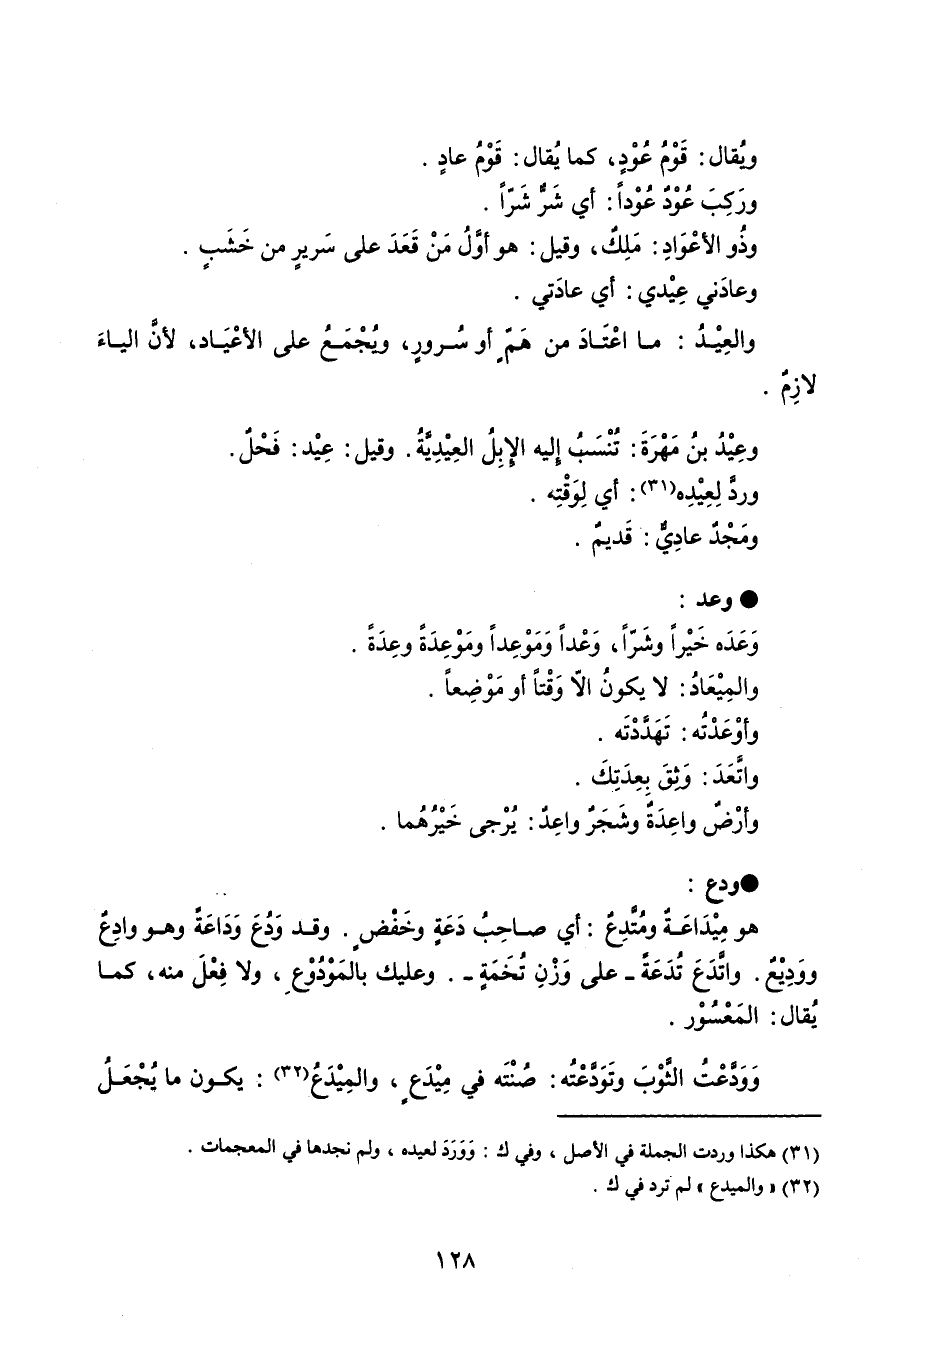 ويُقال: قَوْمُ عُوْدٍ، كما يُقال: قَوْمُ عادٍ .
ورَكِبَ عُوْدٌ عُوْداً: أي شَرٌّ شَرّاً .
وذُو الأعْوَادِ: مَلِكٌ، وقيل: هو أوَّلُ مَنْ قَعَدَ على سَريرٍ من خَشَبٍ .
وعادَني عِيْدي: أي عادَتي .
والعِيْـدُ : مـا اعْتَـادَ من هَمٍّ أو سُـرورٍ، ويُجْمَـعُ على الأعْيَـاد، لأنَّ اليـاءَ
لازِمٌ .
وعِيْدُ بنُ مَهْرَةَ: تُنْسَبُ إليه الإِبِلُ العِيْدِيَّةُ. وقيل: عِيْد: فَحْلٌ.
وردَّ لِعِيْدِه(٣١): أي لِوَقْتِه .
ومَجْدٌ عادِيٌّ: قَديمٌ .
● وعد :
وَعَدَه خَيْراً وشَرّاً، وَعْداً ومَوْعِداً ومَوْعِدَةً وعِدَةً .
والمِيْعَادُ: لا يكونُ الاّ وَقْتاً أو مَوْضِعاً .
وأوْعَدْتُه: تَهَدَّدْتَه .
واتَّعَدَ: وَثِقَ بِعِدَتِكَ .
وأرْضٌ واعِدَةٌ وشَجَرٌ واعِدٌ: يُرْجى خَيْرُهُما .
●ودع :
هو مِيْدَاعَـةٌ ومُتَّدِعٌ : أي صـاحِبُ دَعَةٍ وخَفْضٍ . وقـد وَدُعَ وَدَاعَةً وهـو وادِعٌ
ووَدِيْعٌ. واتَّدَعَ تُدَعَةً ـ على وَزْنِ تُخَمَةٍ ـ . وعليك بالمَوْدُوْعِ ، ولا فِعْلَ منه، كمـا
يُقال: المَعْسُوْر .
ووَدَّعْتُ الثَّوْبَ وتَوَدَّعْتُه: صُنْتَه في مِيْدَعٍ ، والمِيْدَعُ(٣٢) : يكـون ما يُجْعَـلُ
(٣١) هكذا وردت الجملة في الأصل ، وفي ك : وَوَرَدَ لعيده ، ولم نجدها في المعجمات .
(٣٢) « والميدع » لم ترد في ك .
١٢٨